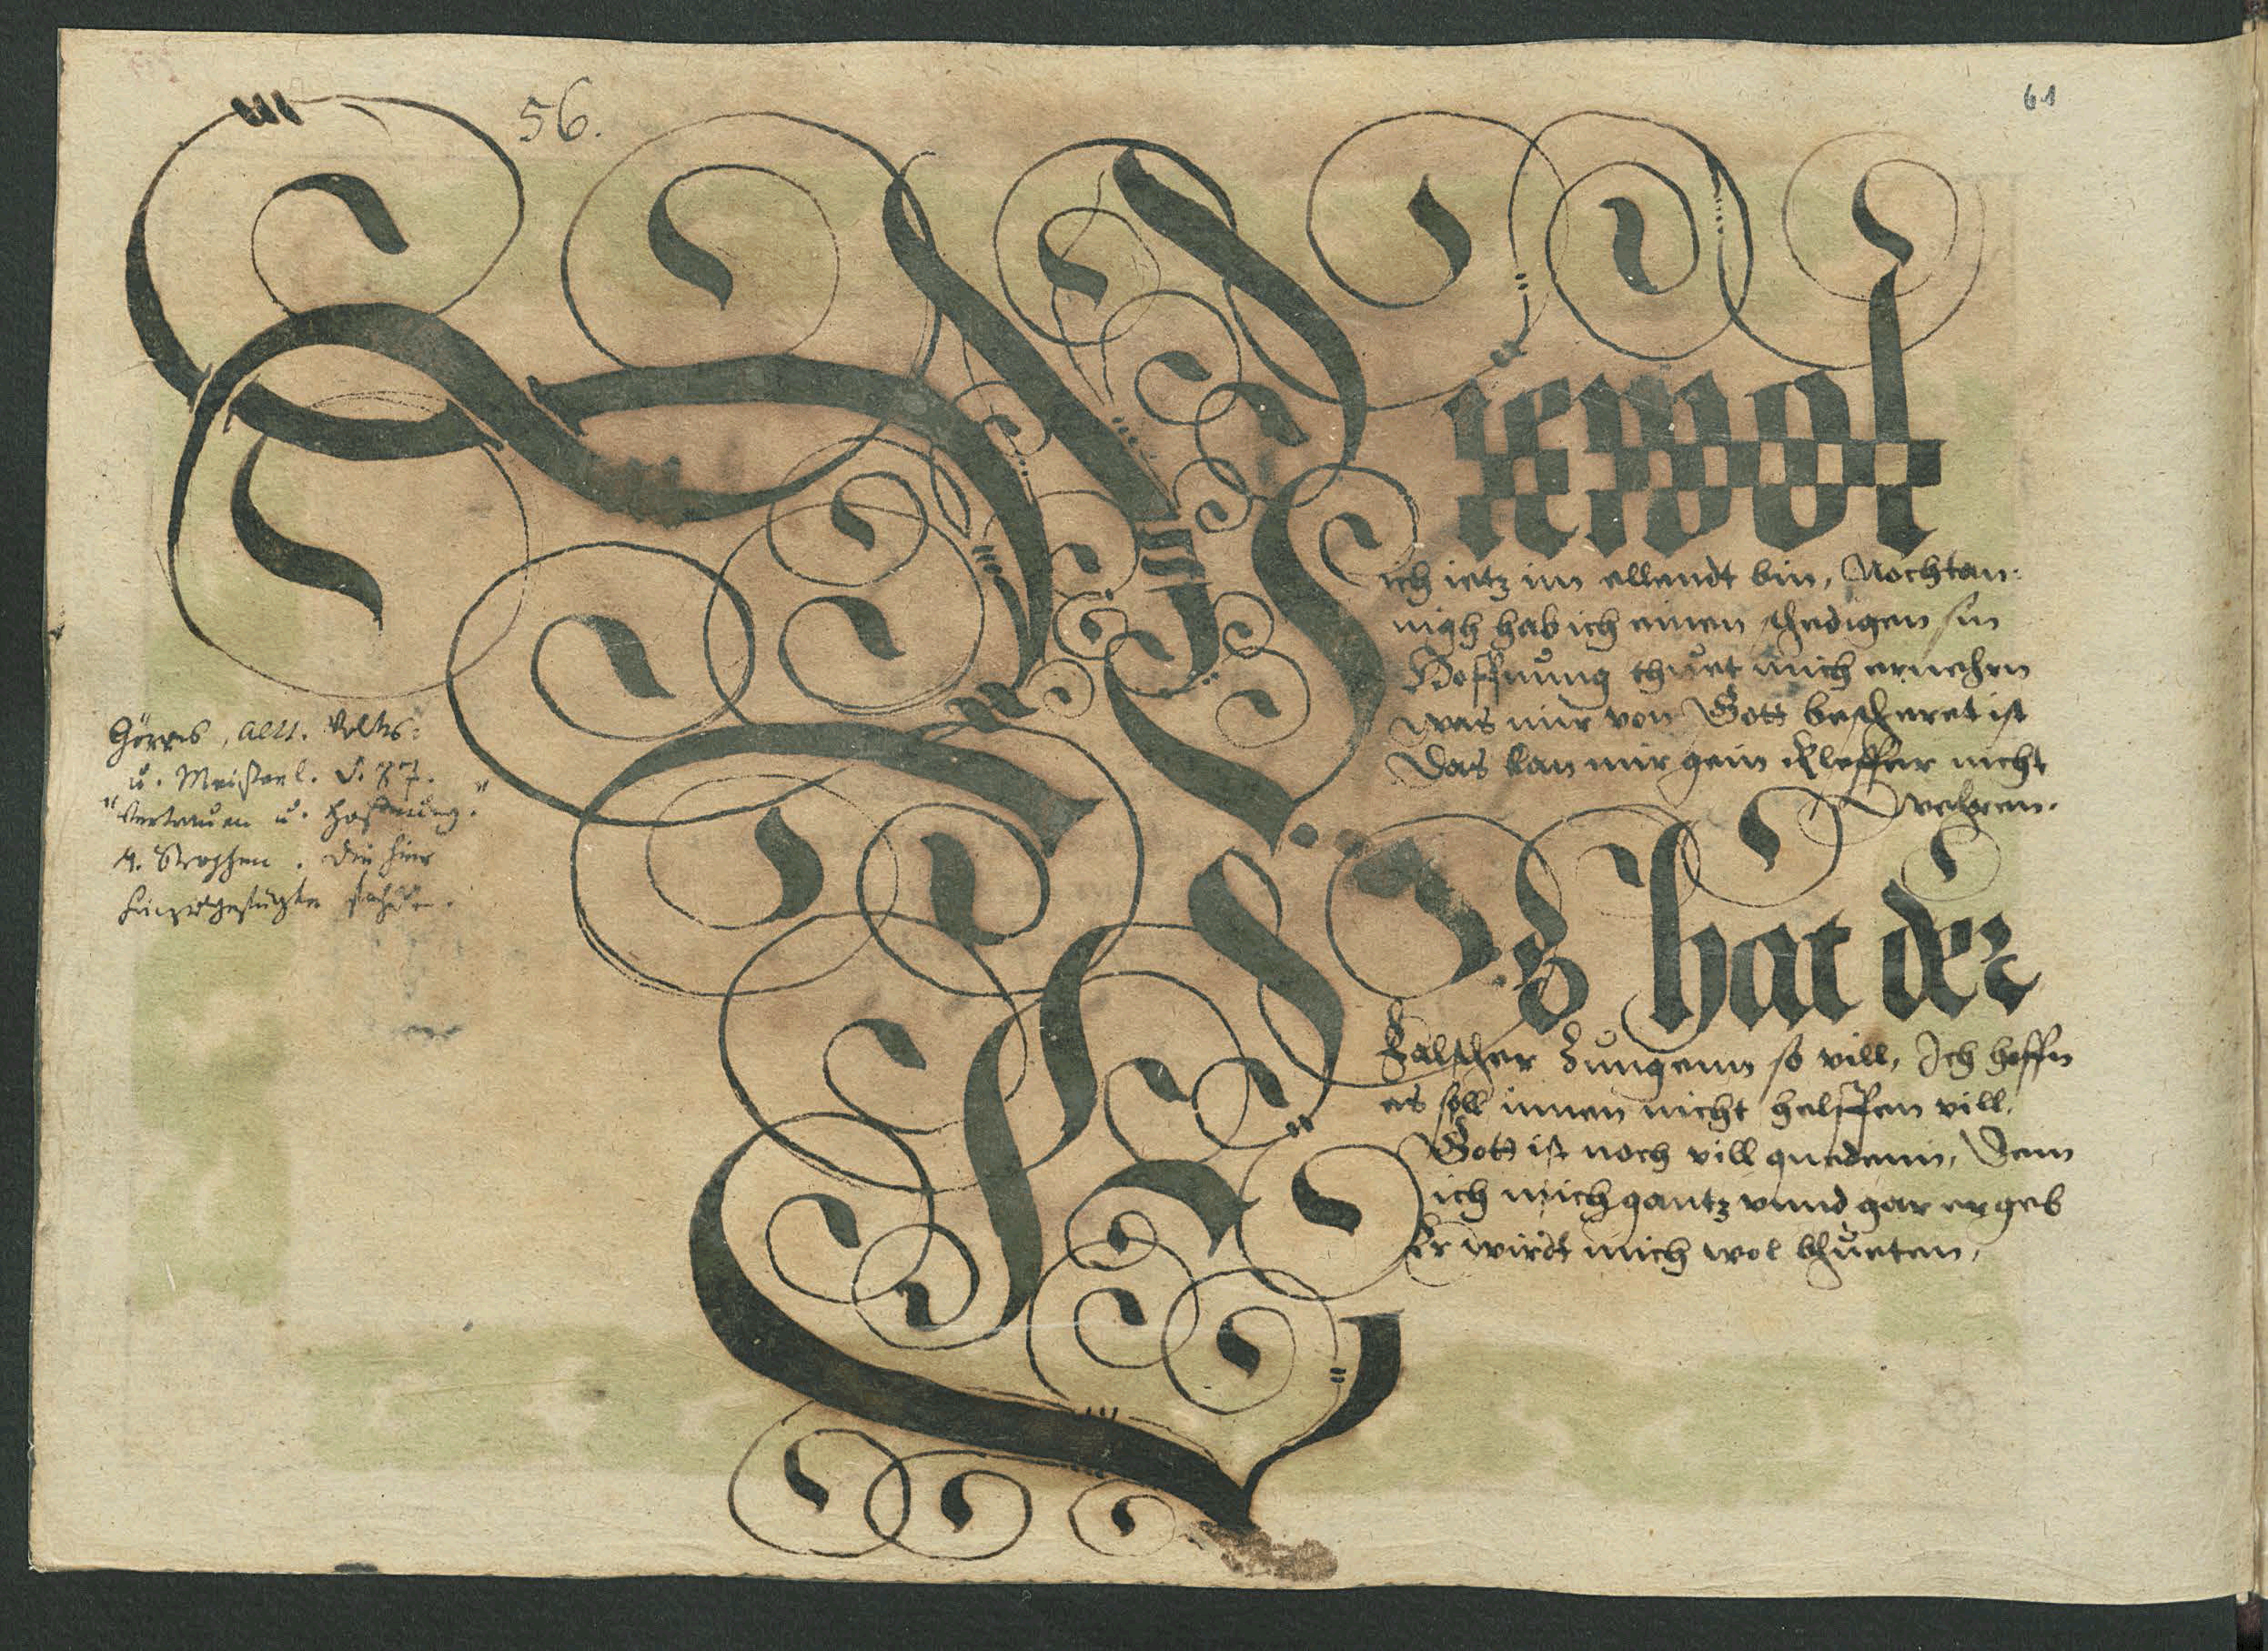 56.
61
Wiewol
ich ietz im ellendt bin, Nochtan:
nigh hab ich einen stedigen sin
Hoffnung thuet mich ernehrn
was mir von Gott bescheret ist
Das kan mir gein Kleffer nicht
wehren.
Es hat der
Falscher Zungenn so vill, Ich hoffn
es soll innen nicht helffen vill.
Gott ist noch vill guedenn, Dem
ich mich gantz vnnd gar ergeb
Er wirdt mich wol bhueten,
Görres, Altt. Volks:
u. Meisterl. S. 87.
"Vertrauen u. Hoffnung."
4. Strophen. Die hier
hinzugefügte fehlen.